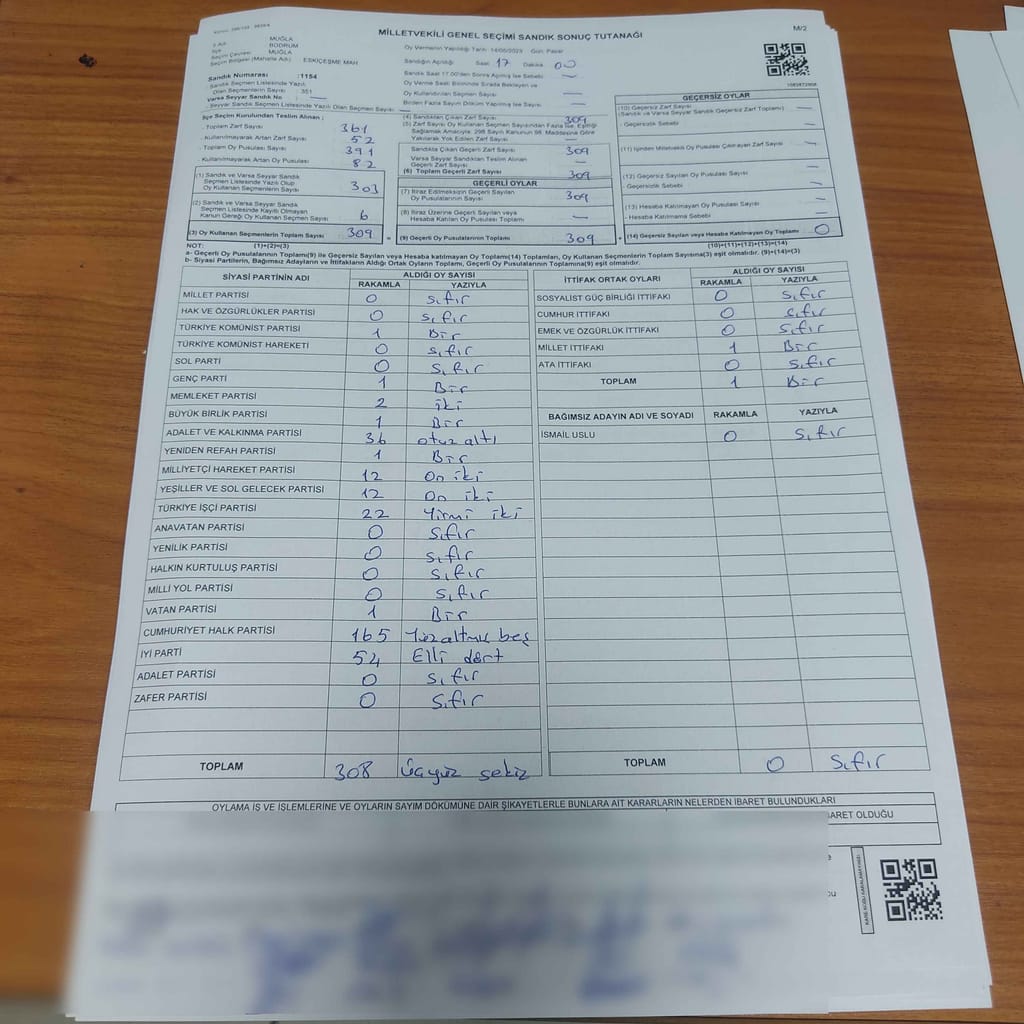 MİLLETVEKİLİ GENEL SEÇİMİ SANDIK SONUÇ TUTANAĞI
M/2
İl Adı MUĞLA
İlçe BODRUM
Seçim Çevresi MUĞLA
Seçim Bölgesi (Mahalle Adı) : ESKİÇEŞME MAH
Oy Vermenin Yapıldığı Tarih: 14/05/2023 Gün: Pazar
Sandığın Açıldığı Saat 17 Dakika 00
Sandık Saat 17.00'den Sonra Açılmış İse Sebebi —
Oy Verme Saati Bitiminde Sırada Bekleyen ve
Oy Kullandırılan Seçmen Sayısı —
Birden Fazla Sayım Döküm Yapılmış İse Sayısı —
Sandık Numarası :1154
Sandık Seçmen Listesinde Yazılı
Olan Seçmenlerin Sayısı : 351
Varsa Seyyar Sandık No —
Seyyar Sandık Seçmen Listesinde Yazılı Olan Seçmen Sayısı: —
İlçe Seçim Kurulundan Teslim Alınan ;
. Toplam Zarf Sayısı 361
. Kullanılmayarak Artan Zarf Sayısı 52
. Toplam Oy Pusulası Sayısı 391
. Kullanılmayarak Artan Oy Pusulası 82
(1) Sandık ve Varsa Seyyar Sandık
Seçmen Listesinde Yazılı Olup
Oy Kullanan Seçmenlerin Sayısı 303
(2) Sandık ve Varsa Seyyar Sandık
Seçmen Listesinde Kayıtlı Olmayan
Kanun Gereği Oy Kullanan Seçmen Sayısı 6
(3) Oy Kullanan Seçmenlerin Toplam Sayısı 309
(1)+(2)=(3)
(4) Sandıktan Çıkan Zarf Sayısı 309
(5) Zarf Sayısı Oy Kullanan Seçmen Sayısından Fazla İse, Eşitliği
Sağlamak Amacıyla, 298 Sayılı Kanunun 98. Maddesine Göre
Yakılarak Yok Edilen Zarf Sayısı —
Sandıkta Çıkan Geçerli Zarf Sayısı 309
Varsa Seyyar Sandıktan Teslim Alınan
Geçerli Zarf Sayısı —
(6) Toplam Geçerli Zarf Sayısı 309
GEÇERLİ OYLAR
(7) İtiraz Edilmeksizin Geçerli Sayılan
Oy Pusulalarının Sayısı 309
(8) İtiraz Üzerine Geçerli Sayılan veya
Hesaba Katılan Oy Pusulası Toplamı —
(9) Geçerli Oy Pusulalarının Toplamı 309
GEÇERSİZ OYLAR
(10) Geçersiz Zarf Sayısı
(Sandık ve Varsa Seyyar Sandık Geçersiz Zarf Toplamı) —
- Geçersizlik Sebebi —
(11) İçinden Milletvekili Oy Pusulası Çıkmayan Zarf Sayısı —
(12) Geçersiz Sayılan Oy Pusulası Sayısı —
- Geçersizlik Sebebi —
(13) Hesaba Katılmayan Oy Pusulası Sayısı —
- Hesaba Katılmama Sebebi —
(14) Geçersiz Sayılan veya Hesaba Katılmayan Oy Toplamı 0
(10)+(11)+(12)+(13)=(14)
NOT:
a- Geçerli Oy Pusulalarının Toplamı(9) ile Geçersiz Sayılan veya Hesaba Katılmayan Oy Toplamı(14) Toplamları, Oy Kullanan Seçmenlerin Toplam Sayısına(3) eşit olmalıdır. (9)+(14)=(3)
b- Siyasi Partilerin, Bağımsız Adayların ve İttifakların Aldığı Ortak Oyların Toplamı, Geçerli Oy Pusulalarının Toplamına(9) eşit olmalıdır.
SİYASİ PARTİNİN ADI ALDIĞI OY SAYISI
RAKAMLA YAZIYLA
MİLLET PARTİSİ 0 sıfır
HAK VE ÖZGÜRLÜKLER PARTİSİ 0 sıfır
TÜRKİYE KOMÜNİST PARTİSİ 1 Bir
TÜRKİYE KOMÜNİST HAREKETİ 0 sıfır
SOL PARTİ 0 sıfır
GENÇ PARTİ 1 Bir
MEMLEKET PARTİSİ 2 iki
BÜYÜK BİRLİK PARTİSİ 1 Bir
ADALET VE KALKINMA PARTİSİ 36 otuz altı
YENİDEN REFAH PARTİSİ 1 Bir
MİLLİYETÇİ HAREKET PARTİSİ 12 On iki
YEŞİLLER VE SOL GELECEK PARTİSİ 12 On iki
TÜRKİYE İŞÇİ PARTİSİ 22 Yirmi iki
ANAVATAN PARTİSİ 0 sıfır
YENİLİK PARTİSİ 0 sıfır
HALKIN KURTULUŞ PARTİSİ 0 sıfır
MİLLİ YOL PARTİSİ 0 sıfır
VATAN PARTİSİ 1 Bir
CUMHURİYET HALK PARTİSİ 165 Yüzaltmış beş
İYİ PARTİ 54 Elli dört
ADALET PARTİSİ 0 sıfır
ZAFER PARTİSİ 0 sıfır
TOPLAM 308 üçyüz sekiz
İTTİFAK ORTAK OYLARI ALDIĞI OY SAYISI
RAKAMLA YAZIYLA
SOSYALİST GÜÇ BİRLİĞİ İTTİFAKI 0 sıfır
CUMHUR İTTİFAKI 0 sıfır
EMEK VE ÖZGÜRLÜK İTTİFAKI 0 sıfır
MİLLET İTTİFAKI 1 Bir
ATA İTTİFAKI 0 sıfır
TOPLAM 1 Bir
BAĞIMSIZ ADAYIN ADI VE SOYADI RAKAMLA YAZIYLA
İSMAİL USLU 0 sıfır
TOPLAM 0 Sıfır
OYLAMA İŞ VE İŞLEMLERİNE VE OYLARIN SAYIM DÖKÜMÜNE DAİR ŞİKAYETLERLE BUNLARA AİT KARARLARIN NELERDEN İBARET BULUNDUKLARI
BARET OLDUĞU